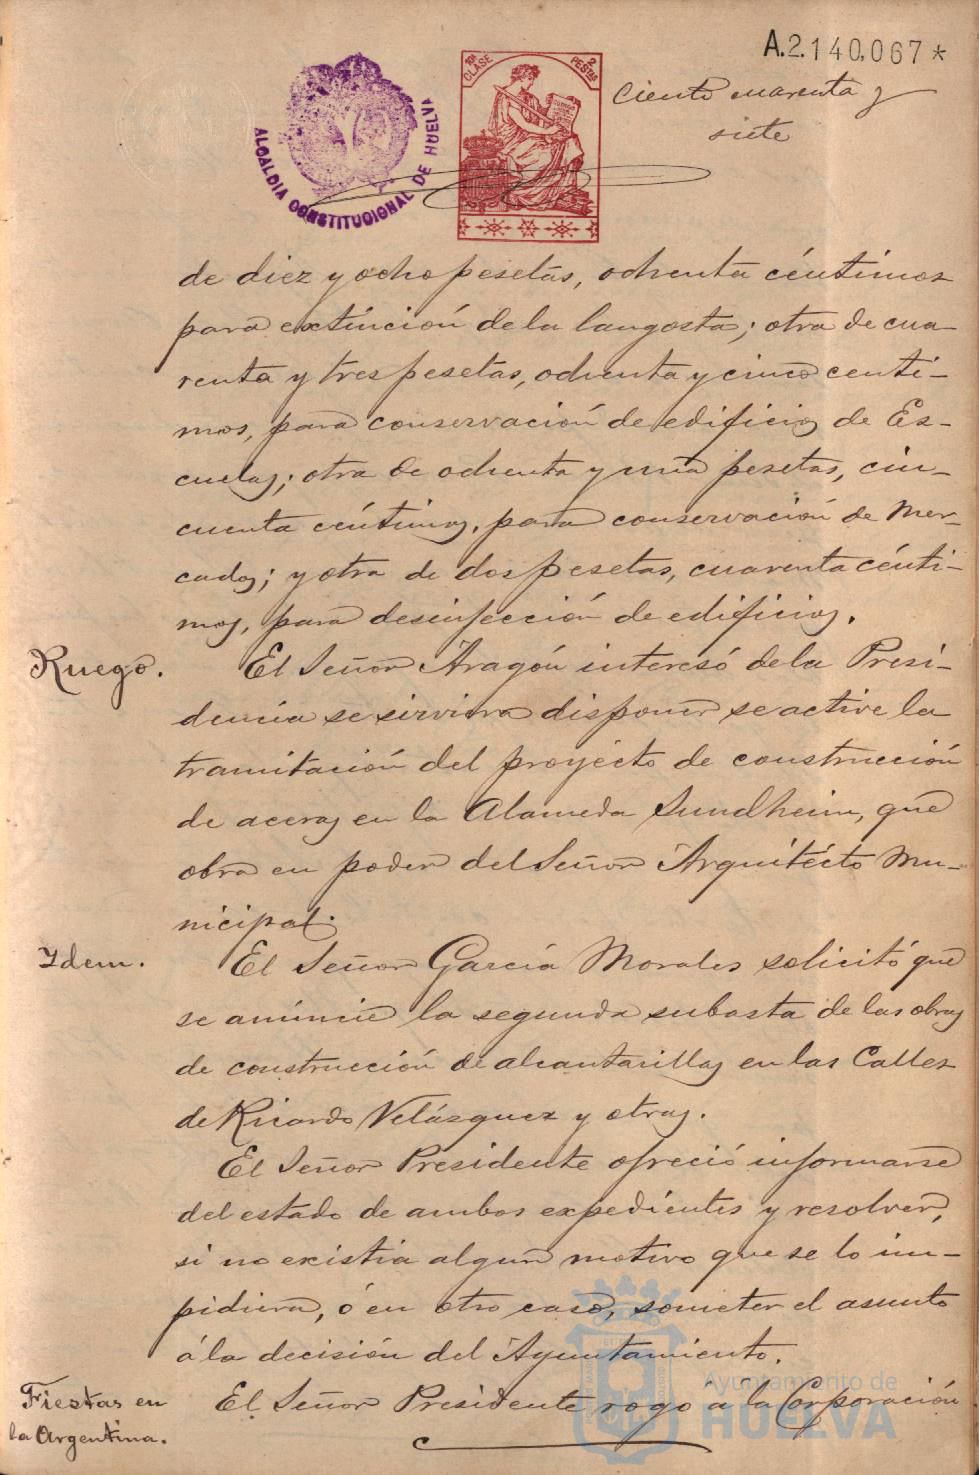 A.2.140,067*
Ciento cuarenta y
siete
ALCALDIA CONSTITUCIONAL DE HUELVA
10ª CLASE
2 PESTAS
de diez y ocho pesetas, ochenta céntimos
para extinción de la langosta; otra de cua-
renta y tres pesetas, ochenta y cinco centi-
mos, para conservación de edificios de Es-
cuelas; otra de ochenta y una pesetas, cin-
cuenta céntimos, para conservación de Mer-
cados; y otra de dos pesetas, cuarenta cénti-
mos, para desinfección de edificios.
Ruego.
El Señor Aragón interesó de la Presi-
dencia se sirviera disponer se active la
tramitación del proyecto de construcción
de aceras en la Alameda Sundheim, que
obra en poder del Señor Arquitécto Mu-
nicipal.
Ydem.
El Señor García Morales solicitó que
se anúncie la segunda subasta de las obras
de construcción de alcantarillas en las Calles
de Ricardo Velázquez y otras.
El Señor Presidente ofreció informarse
del estado de ambos expedientes y resolver,
si no existia algun motivo que se lo im-
pidiera, ó en otro caso, someter el asunto
á la decisión del Ayuntamiento.
Fiestas en
la Argentina.
El Señor Presidente rogó á la Corporación
Ayuntamiento de
HUELVA